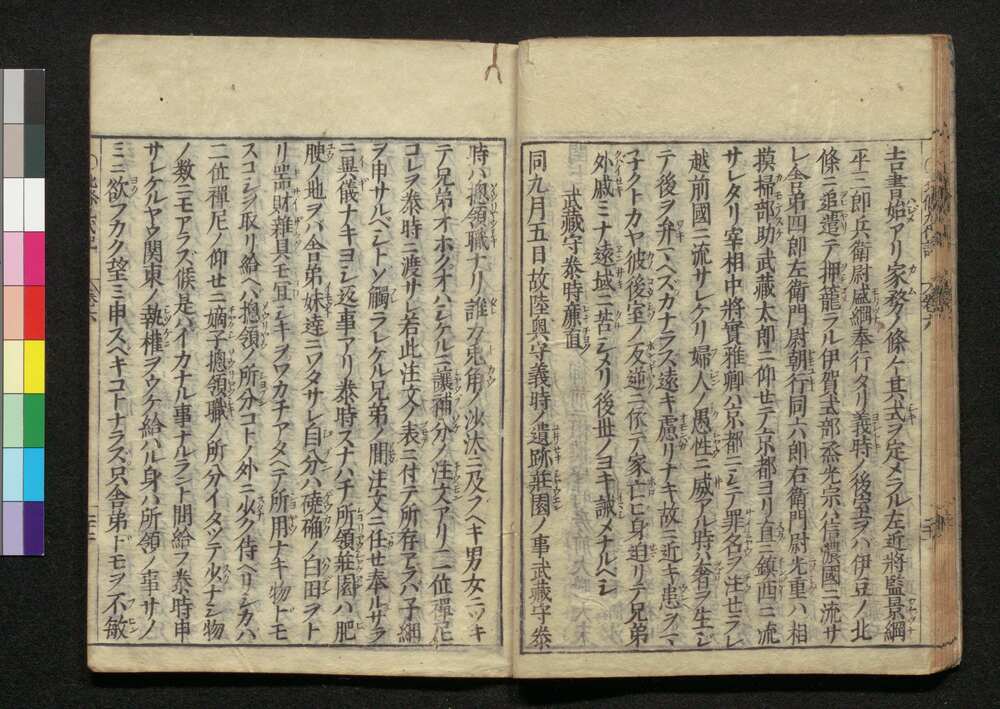 吉書始アリ家務ノ條々其式ヲ定メラル左近將監景綱
平二郎兵衛尉盛綱奉行タリ義時ノ後室ヲハ伊豆ノ北
條ニ追遣テ押籠ラル伊賀式部丞光宗ハ信濃國ニ流サ
レ舎弟四郎左衛門尉朝行同六郎右衛門尉光重ハ相
摸掃部助武藏太郎ニ仰セテ京都ヨリ直ニ鎮西ニ流
サレタリ宰相中將實雅卿ハ京都ニシテ罪名ヲ注セラレ
越前國ニ流サレケリ婦人ノ愚性ニ威アル時ハ奢ヲ生シ
テ後ヲ弁ヘズカナラス遠キ慮リナキ故ニ近キ患ヲマ
子クトカヤ彼後室ノ反逆ニ依テ家亡ヒ身迫リテ兄弟
外戚ミナ遠域ニ苦シメリ後世ノヨキ誡メナルヘシ
武藏守泰時廉直
同九月五日故陸奥守義時ノ遺跡莊園ノ事武藏守泰
時ハ摠領職ナリ誰カ兎角ノ沙汰ニ及フヘキ男女ニツキ
テ兄弟オホクオハシケルニ讓補分ノ注文アリ二位禪尼
コレヲ泰時ニ渡サレ若此注文ノ表ニ付テ所存アラハ子細
ヲ申サルヘシトソ觸ラレケル兄弟ノ間注文ニ任セ奉ルサラ
ニ異儀ナキヨシ返事アリ泰時スナハチ所領莊園ハ肥
腴ノ地ヲハ舎弟妹達ニワタサレ自分ハ磽确ノ白田ヲト
リ器財雜具モ冝シキヲワカチアタヘテ所用ナキ物トモ
スコシヲ取リ給ヘハ摠領ノ所分コトノ外ニ少ク侍ヘリシカハ
二位禪尼ノ仰セニ嫡子摠領職ノ所分イタツテ少ナシ物
ノ数ニモアラス候是ハイカナル事ナルラント問給フ泰時申
サレケルヤウ関東ノ執権ヲウケ給ハル身ハ所領ノ事サノ
ミニ欲フカク望ミ申スヘキコトナラス只舎弟トモヲ不敏